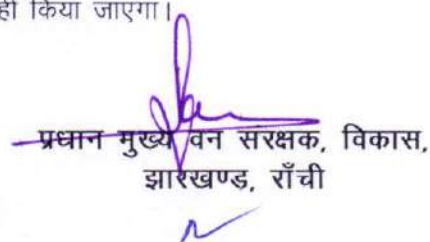 ही किया जाएगा।
प्रधान मुख्य वन सरक्षक, विकास,
झारखण्ड, राँची